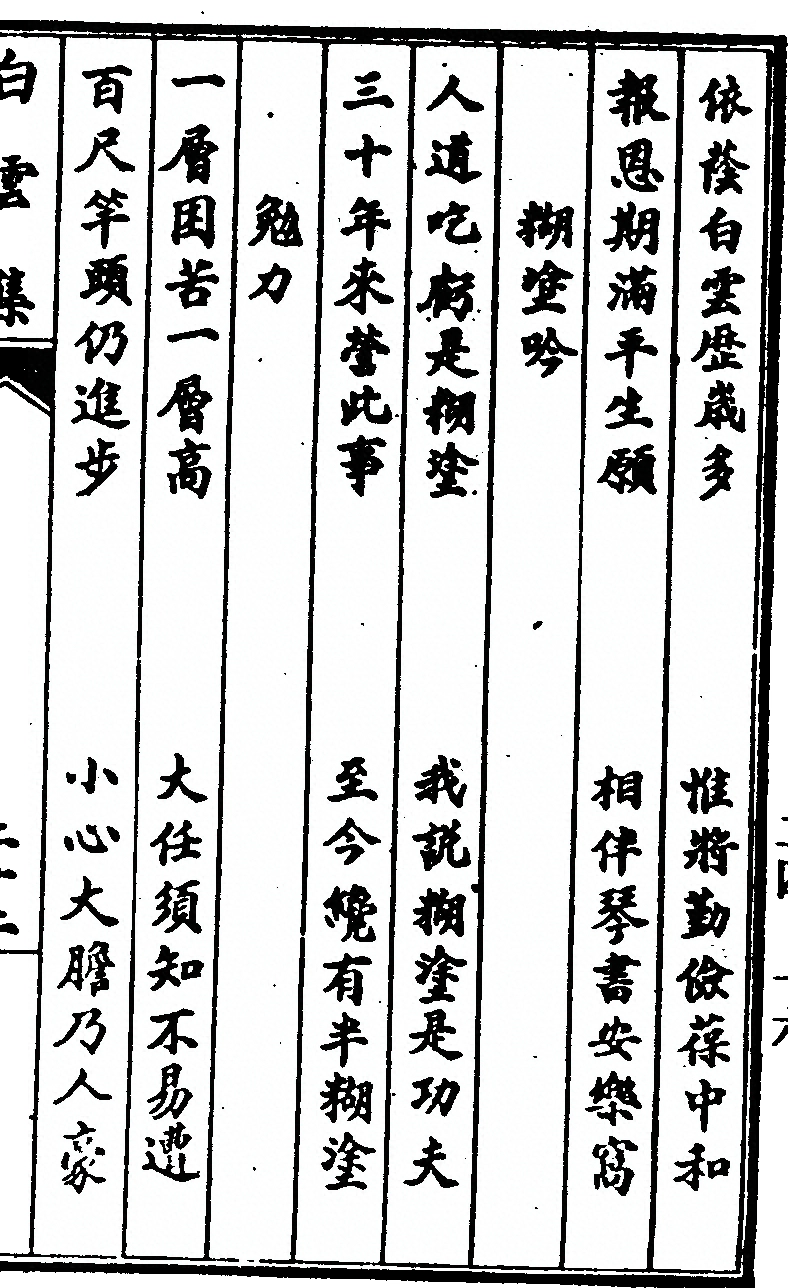 依蔭白雲歷歲多　惟將勤儉葆中和
報恩期滿平生願　相伴琴書安樂窩
糊塗吟
人道吃虧是糊塗　我說糊塗是功夫
三十年來營此事　至今纔有半糊塗
勉力
一層困苦一層高　大任須知不易遭
百尺竿頭仍進步　小心大膽乃人豪
白雲集